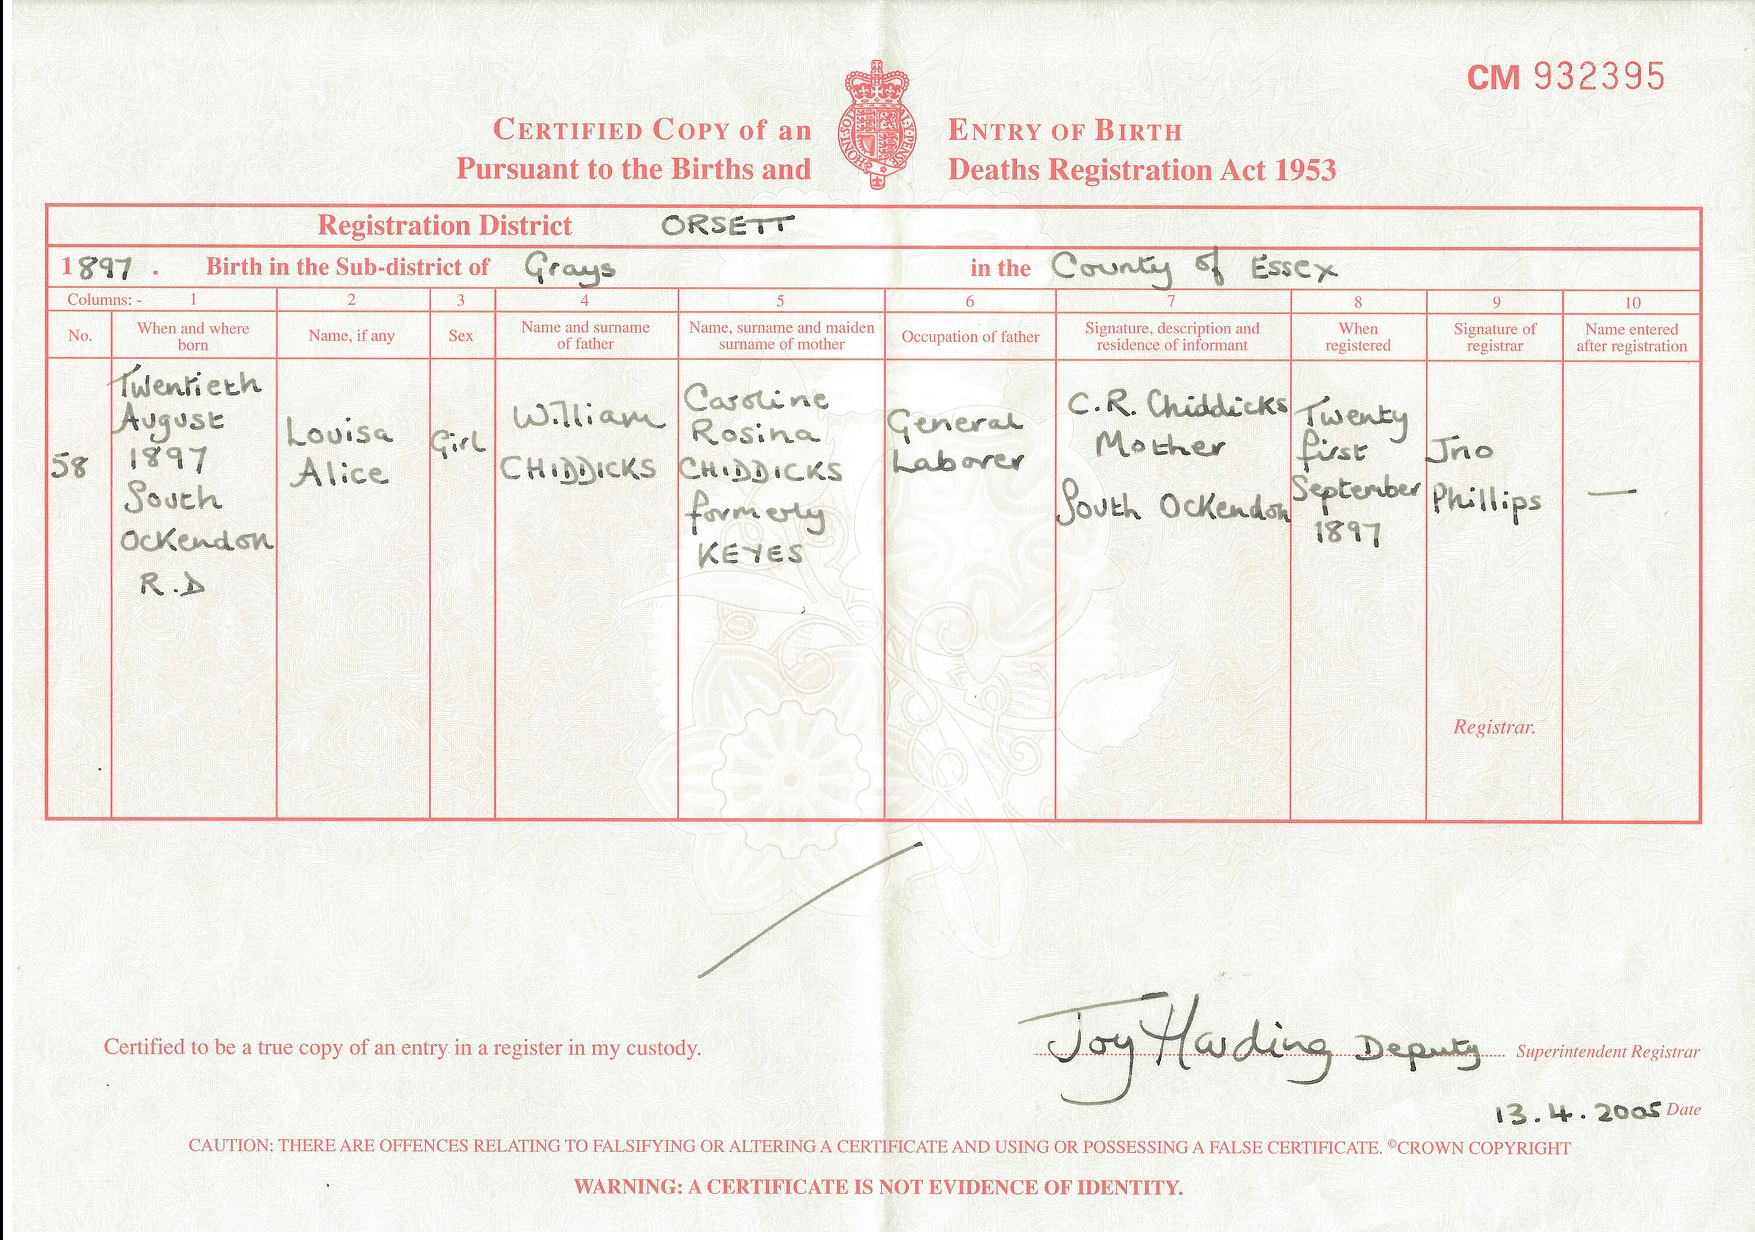 CM 932395
CERTIFIED COPY of an ENTRY OF BIRTH
Pursuant to the Births and Deaths Registration Act 1953
HONI·SOIT AL·Y·PENSE
Registration District ORSETT
1897. Birth in the Sub-district of Grays in the County of Essex
Columns: - 1 2 3 4 5 6 7 8 9 10
No.
When and where
born
Name, if any
Sex
Name and surname
of father
Name, surname and maiden
surname of mother
Occupation of father
Signature, description and
residence of informant
When
registered
Signature of
registrar
Name entered
after registration
58
Twentieth
August
1897
South
Ockendon
R.D
Louisa
Alice
Girl
William
CHIDDICKS
Caroline
Rosina
CHIDDICKS
formerly
KEYES
General
Laborer
C.R. Chiddicks
Mother
South Ockendon
Twenty
first
September
1897
Jno
Phillips
Registrar.
—
Certified to be a true copy of an entry in a register in my custody.
Joy Harding Deputy Superintendent Registrar
13.4.2005 Date
CAUTION: THERE ARE OFFENCES RELATING TO FALSIFYING OR ALTERING A CERTIFICATE AND USING OR POSSESSING A FALSE CERTIFICATE. ©CROWN COPYRIGHT
WARNING: A CERTIFICATE IS NOT EVIDENCE OF IDENTITY.